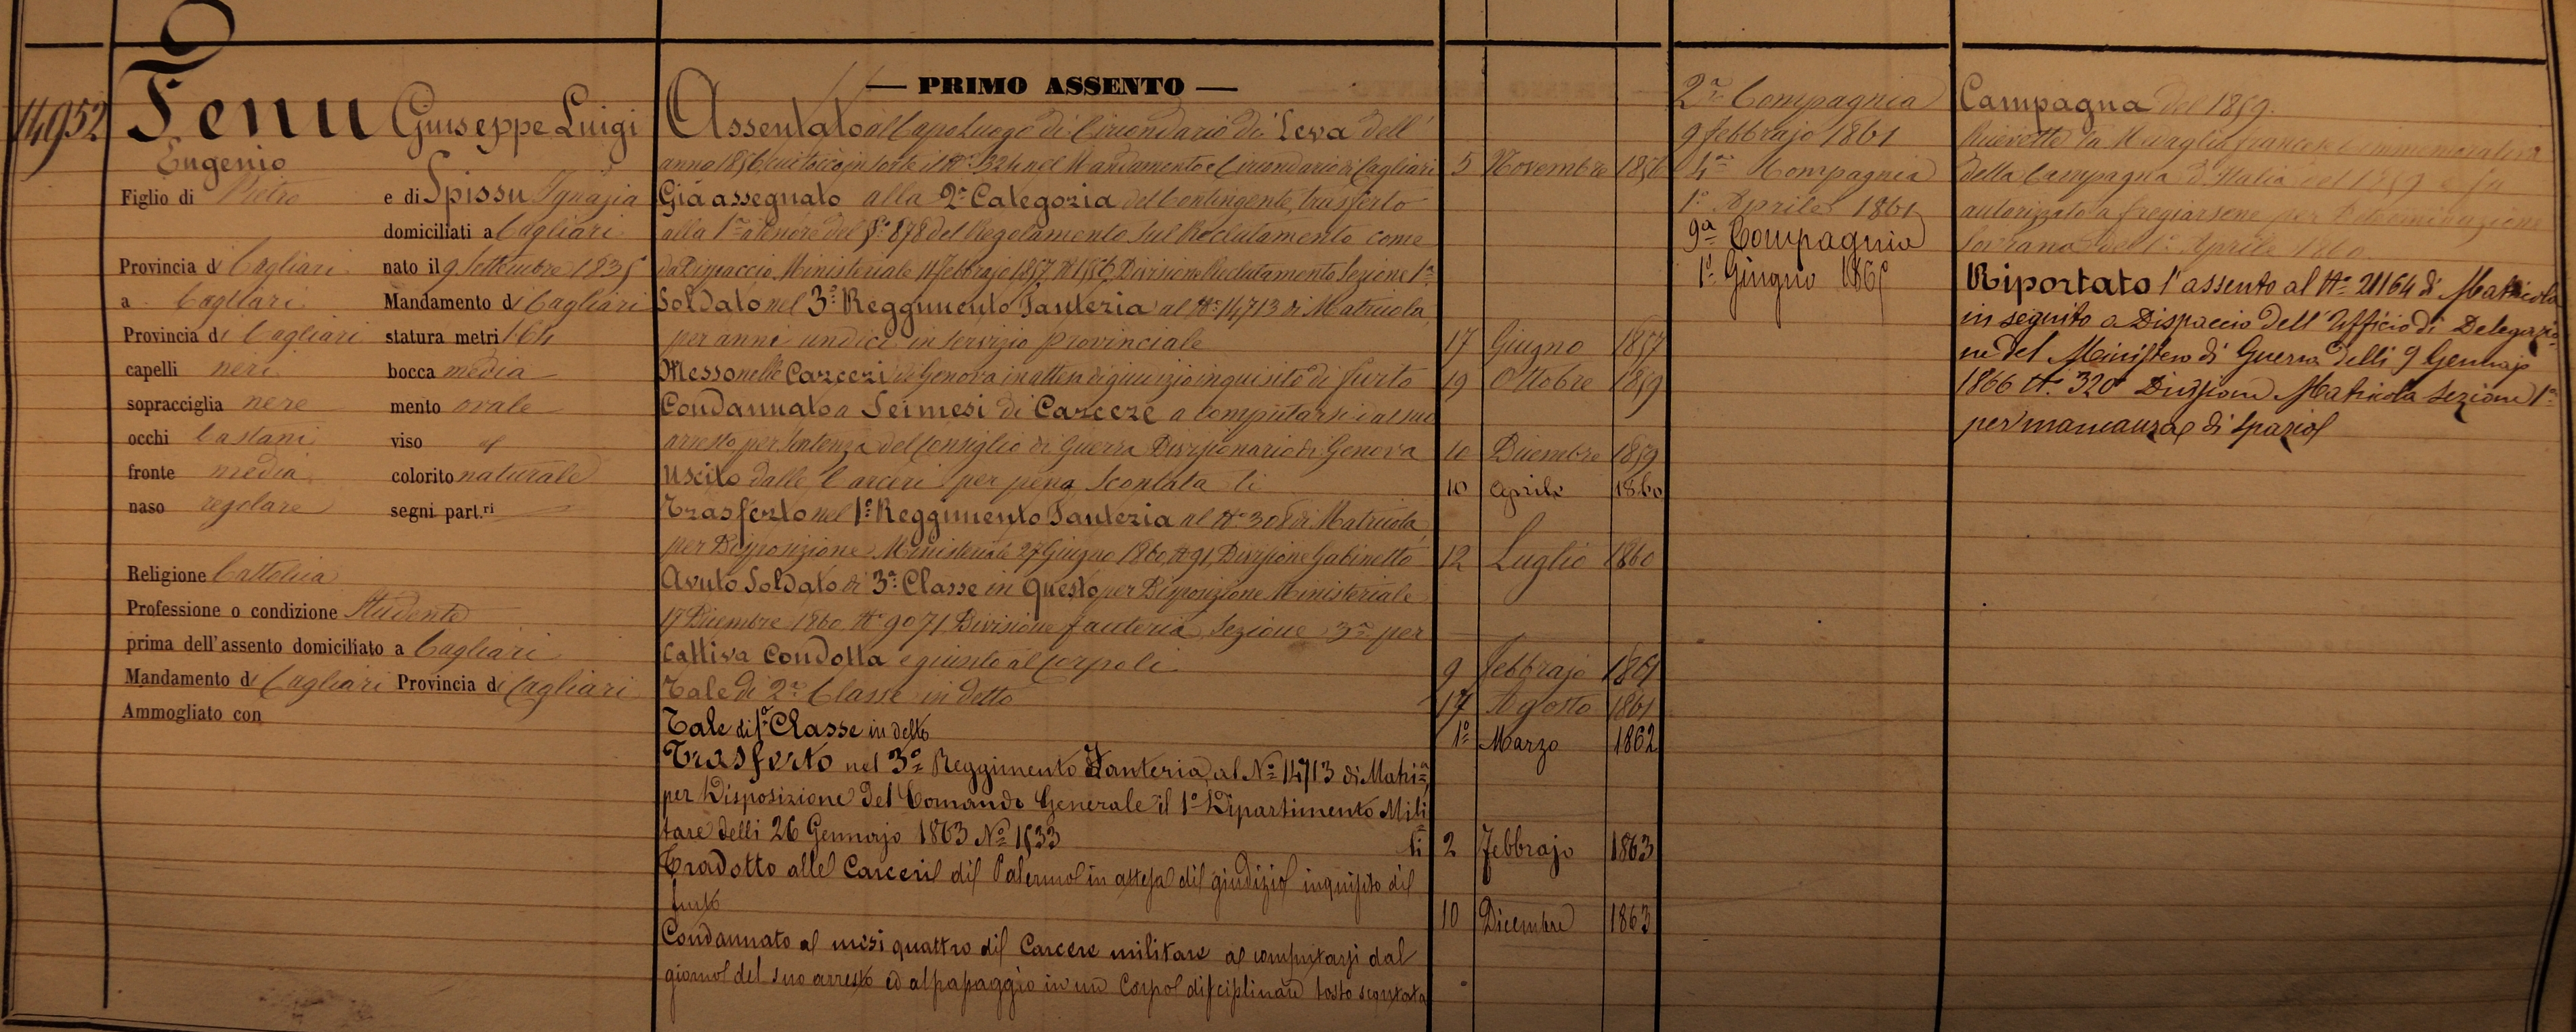 14952
Fenu Giuseppe Luigi
Eugenio
Figlio di Pietro e di Spissu Ignazia
domiciliati a Cagliari
Provincia di Cagliari nato il 9 Settembre 1835
a Cagliari Mandamento di Cagliari
Provincia di Cagliari statura metri 1.64
capelli neri bocca media
sopracciglia nere mento ovale
occhi Castani viso id
fronte media colorito naturale
naso regolare segni part.ri
Religione Cattolica
Professione o condizione Studente
prima dell'assento domiciliato a Cagliari
Mandamento di Cagliari Provincia di Cagliari
Ammogliato con
— PRIMO ASSENTO —
Assentato al Capo Luogo di Circondario di Leva dell'
anno 1856 cui toccò in sorte il No 324 nel Mandamento e Circondario di Cagliari 5 Novembre 1856
Già assegnato alla 2a Categoria del Contingente, trasferto
alla 1a a tenore del §o 878 del Regolamento sul Reclutamento come
da Dispaccio Ministeriale 11 Febbrajo 1857 No 156 Divisione Reclutamento Sezione 1a
Soldato nel 3o Reggimento Fanteria al No 14713 di Matricola
per anni undici in servizio provinciale 17 Giugno 1857
Messo nelle Carceri di Genova in attesa di giudizio inquisito di furto 19 Ottobre 1859
Condannato a Sei mesi di Carcere a computarsi dal suo
arresto per Sentenza del Consiglio di Guerra Divisionario di Genova 10 Dicembre 1859
Uscito dalle Carceri per pena scontata li 10 Aprile 1860
Trasferto nel 1o Reggimento Fanteria al No 308 di Matricola
per Disposizione Ministeriale 27 Giugno 1860 No 91 Divisione Gabinetto 12 Luglio 1860
Avuto Soldato di 3a Classe in questo per Disposizione Ministeriale
17 Dicembre 1860 No 9071 Divisione fanteria, Sezione 3a per
Cattiva Condotta e giunto al Corpo li 9 Febbrajo 1861
Tale di 2a Classe in detto 17 Agosto 1861
Tale di 1a Classe in detto 1o Marzo 1862
Trasferto nel 3o Reggimento Fanteria al No 14713 di Matrla
per Disposizione del Comando Generale il 1o Dipartimento Mili
tare delli 26 Gennajo 1863 No 1533 li 2 Febbrajo 1863
Tradotto alle Carceri di Palermo in attesa di giudizio inquisito di
furto 10 Dicembre 1863
Condannato a mesi quattro di Carcere militare a computarsi dal
giorno del suo arresto ed al passaggio in un Corpo disciplinare tosto scontata
2a Compagnia
9 Febbrajo 1861
4a Compagnia
1o Aprile 1861
9a Compagnia
1o Giugno 1865
Campagna del 1859.
Ricevette la Medaglia francese commemorativa
della Campagna d'Italia del 1859 e fu
autorizzato a fregiarsene per Determinazione
Sovrana del 1o Aprile 1860
Riportato l'assento al No 21164 di Matricola
in seguito a Dispaccio dell'Ufficio di Delegazio
ne del Ministero di Guerra delli 9 Gennajo
1866 No 320 Divisione Matricola Sezione 1a
per mancanza di spazio